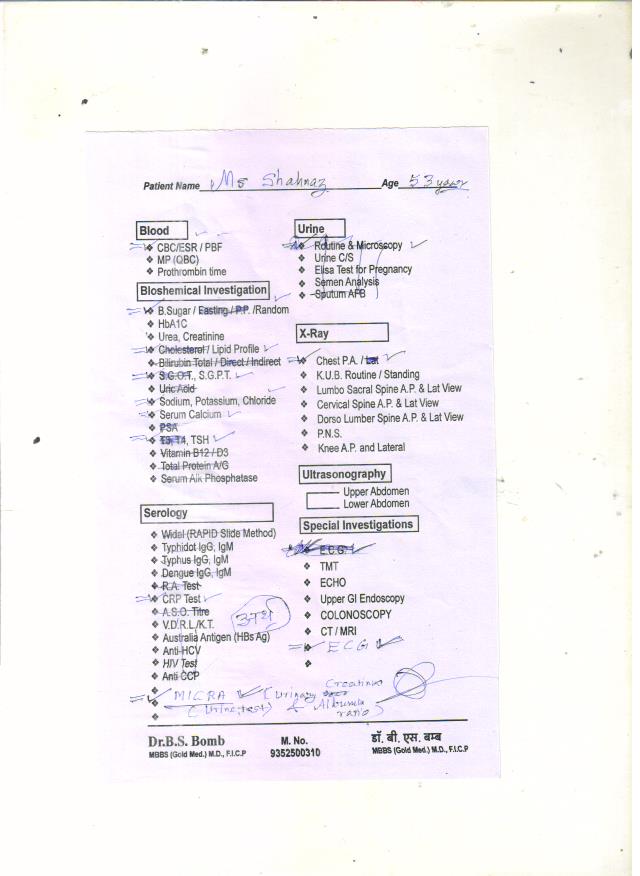 Patient Name Ms Shahnaz Age 53 years
Blood
❖ CBC/ESR / PBF
❖ MP (QBC)
❖ Prothrombin time
Bioshemical Investigation
❖ B.Sugar / Easting / P.P. /Random
❖ HbA1C
❖ Urea, Creatinine
❖ Cholesterol / Lipid Profile
❖ Bilirubin Total / Direct / Indirect
❖ S.G.O.T., S.G.P.T.
❖ Uric Acid
❖ Sodium, Potassium, Chloride
❖ Serum Calcium
❖ PSA
❖ T3, T4, TSH
❖ Vitamin B12 / D3
❖ Total Protein A/G
❖ Serum Alk Phosphatase
Serology
❖ Widal (RAPID Slide Method)
❖ Typhidot IgG, IgM
❖ Typhus IgG, IgM
❖ Dengue IgG, IgM
❖ R.A. Test
❖ CRP Test
❖ A.S.O. Titre
❖ V.D.R.L./K.T.
❖ Australia Antigen (HBs Ag)
❖ Anti-HCV
❖ HIV Test
❖ Anti CCP
Urine
❖ Routine & Microscopy
❖ Urine C/S
❖ Elisa Test for Pregnancy
❖ Semen Analysis
❖ Sputum AFB
X-Ray
❖ Chest P.A. / Lat
❖ K.U.B. Routine / Standing
❖ Lumbo Sacral Spine A.P. & Lat View
❖ Cervical Spine A.P. & Lat View
❖ Dorso Lumber Spine A.P. & Lat View
❖ P.N.S.
❖ Knee A.P. and Lateral
Ultrasonography
Upper Abdomen
Lower Abdomen
Special Investigations
❖ E.C.G.
❖ TMT
❖ ECHO
❖ Upper GI Endoscopy
❖ COLONOSCOPY
❖ CT / MRI
❖ ECG
MICRA (Urinary Creatinine
(Urine test) & Albumin
ratio)
Dr.B.S. Bomb M. No. डॉ. बी. एस. बम्ब
MBBS (Gold Med.) M.D., F.I.C.P 9352500310 MBBS (Gold Med.) M.D., F.I.C.P